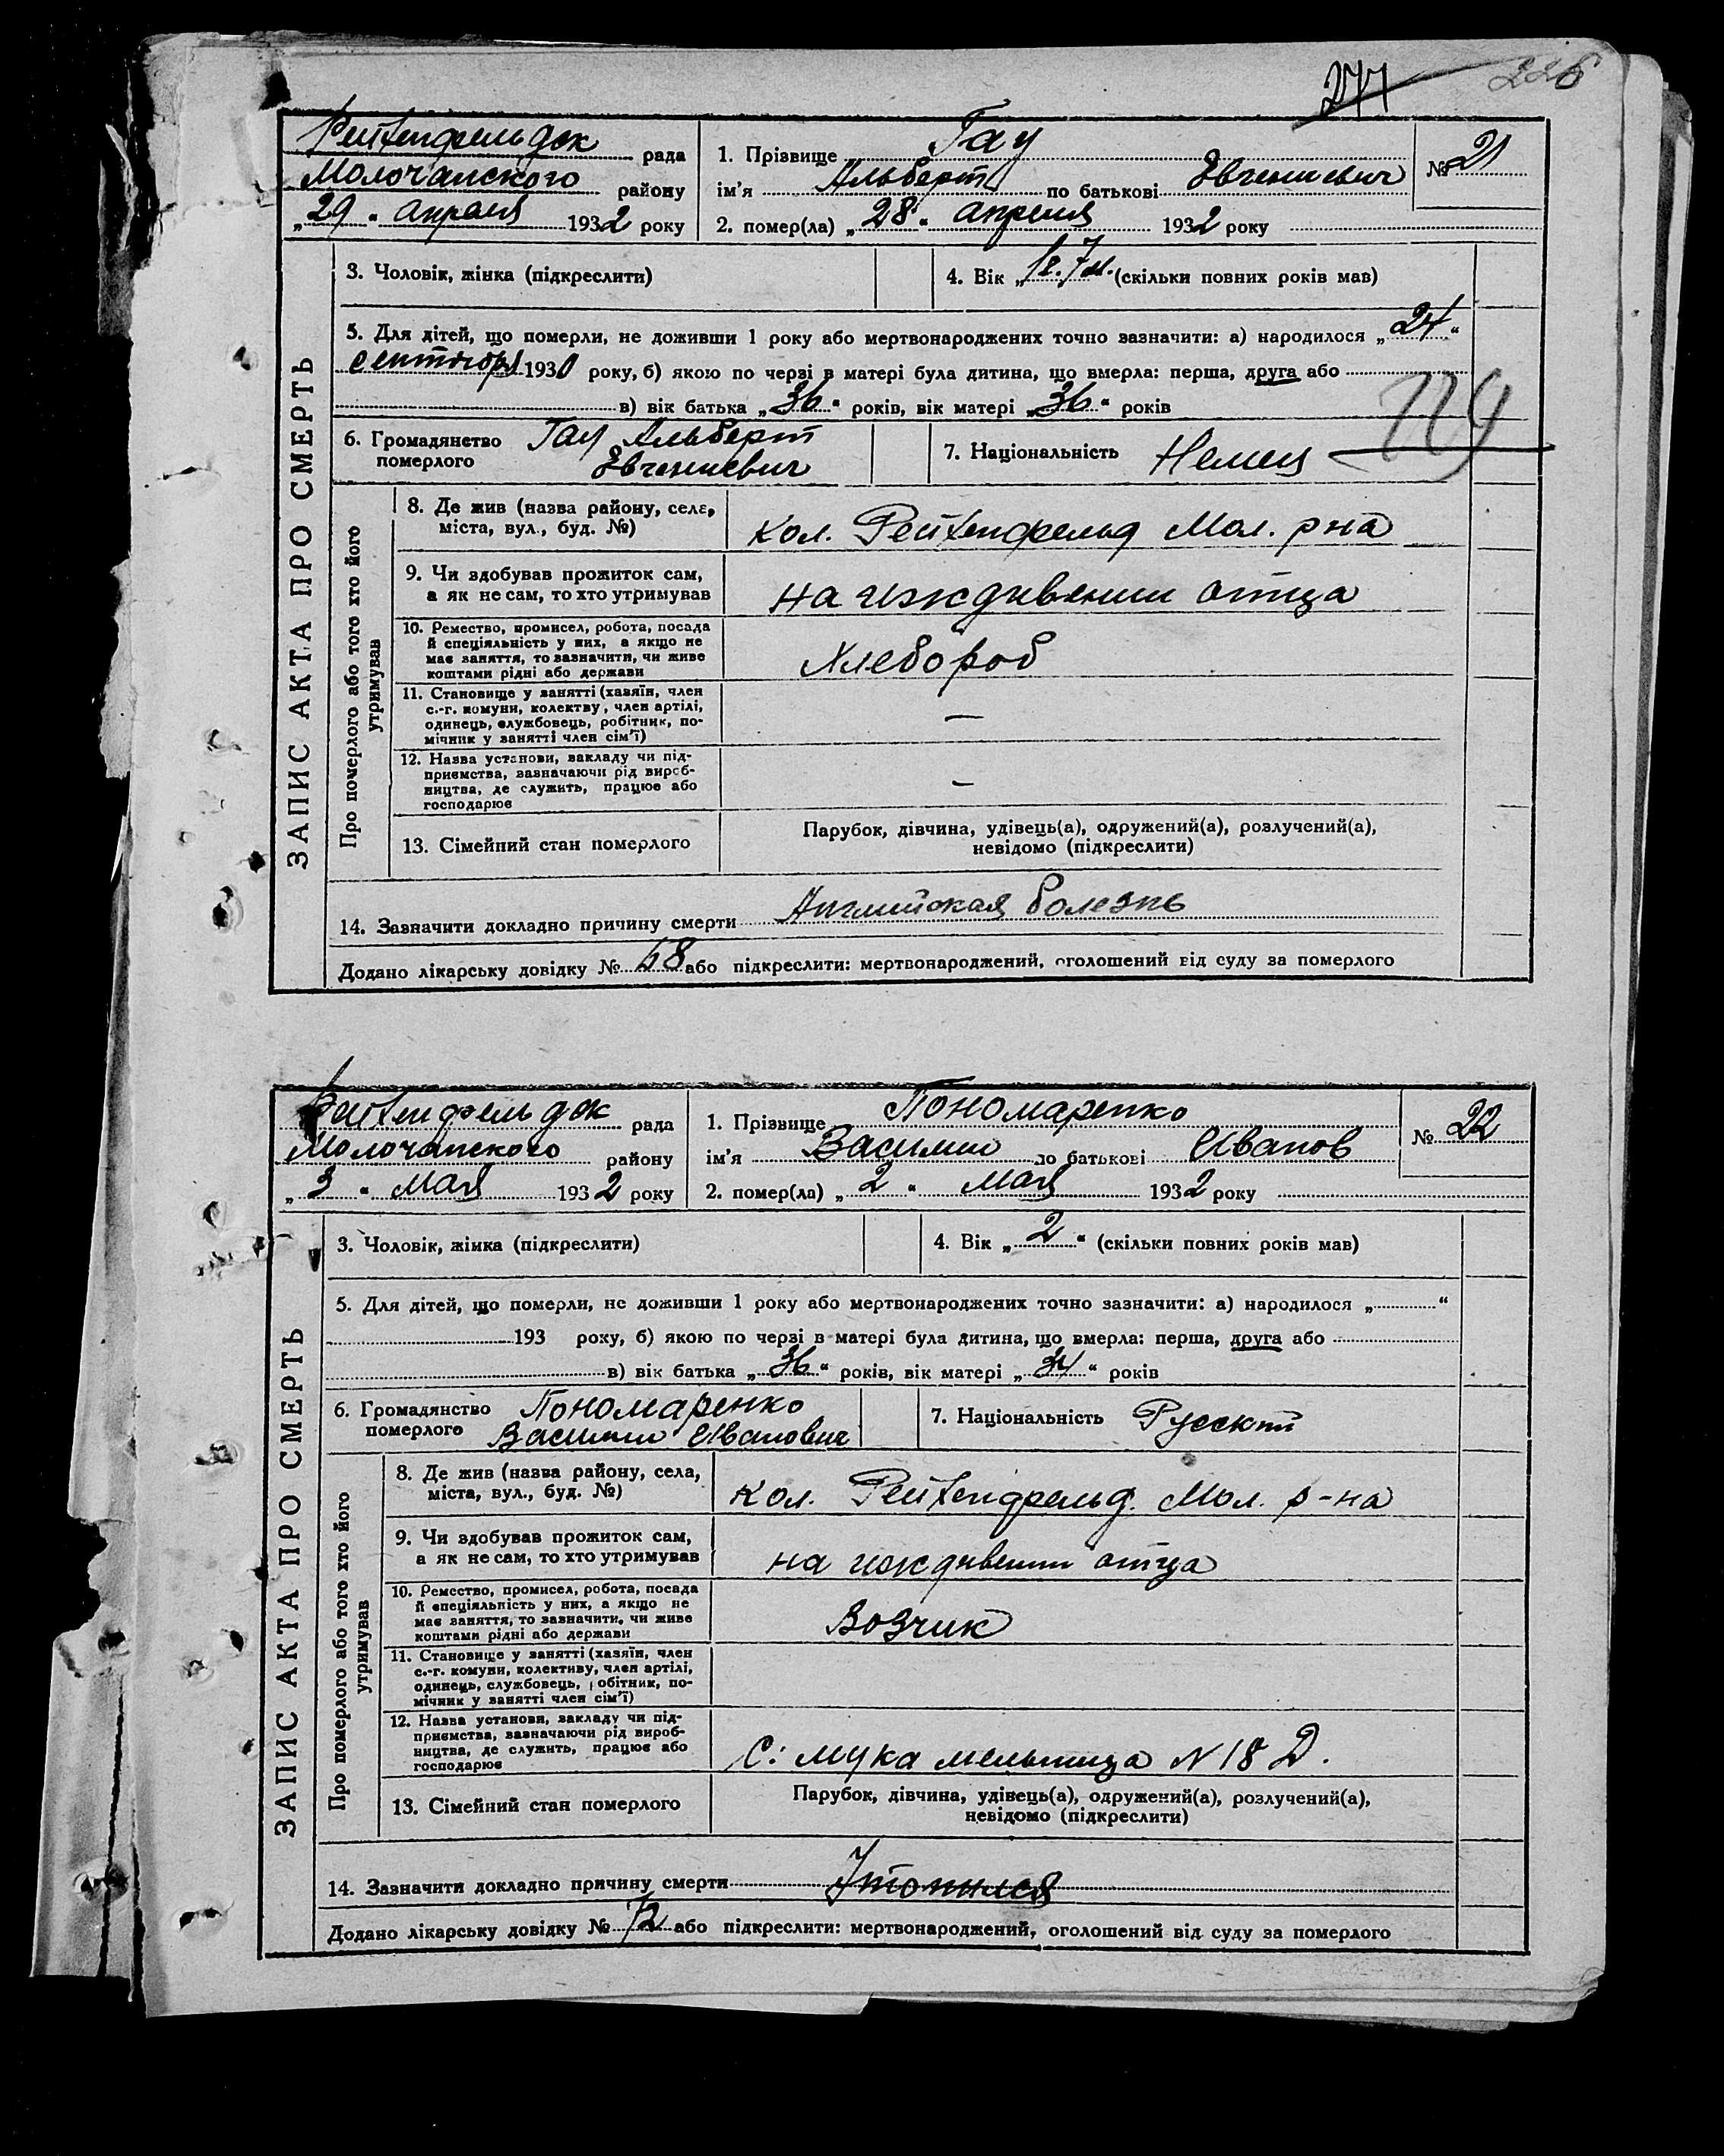 277 226
Рейхенфельдск рада
Молочанского району
„29“ апреля 1932 року
1. Прізвище Гау
ім’я Альберт по батькові Евгениевич
№ 21
2. помер(ла) „28“ апреля 1932 року
ЗАПИС АКТА ПРО СМЕРТЬ
3. Чоловік, жінка (підкреслити)
4. Вік „1г. 7м.“ (скільки повних років мав)
5. Для дітей, що померли, не доживши 1 року або мертвонароджених точно зазначити: а) народилося „24“
сентября 1930 року, б) якою по черзі в матері була дитина, що вмерла: перша, друга або
в) вік батька „36“ років, вік матері „36“ років
6. Громадянство померлого Гау Альберт
Евгениевич
7. Національність Немец
Про померлого або того хто його утримував
8. Де жив (назва району, села,
міста, вул., буд. №)
кол. Рейхенфельд Мол. р-на
9. Чи здобував прожиток сам,
а як не сам, то хто утримував
на иждивении отца
10. Ремество, промисел, робота, посада
й спеціяльність у них, а якщо не
має заняття, то зазначити, чи живе
коштами рідні або держави
Хлебороб
11. Становище у занятті (хазяїн, член
с.-г. комуни, колектву, член артілі,
одинець, службовець, робітник, по-
мічник у занятті член сім’ї)
—
12. Назва установи, закладу чи під-
приємства, зазначаючи рід вироб-
ництва, де служить, працює або
господарює
—
13. Сімейний стан померлого
Парубок, дівчина, удівець(а), одружений(а), розлучений(а),
невідомо (підкреслити)
14. Зазначити докладно причину смерти Английская болезнь
Додано лікарську довідку № 68 або підкреслити: мертвонароджений, оголошений від суду за померлого
Рейхенфельдск рада
Молочанского району
„3“ мая 1932 року
1. Прізвище Пономаренко
ім’я Василий по батькові Иванов
№ 22
2. помер(ла) „2“ мая 1932 року
ЗАПИС АКТА ПРО СМЕРТЬ
3. Чоловік, жінка (підкреслити)
4. Вік „2“ (скільки повних років мав)
5. Для дітей, що померли, не доживши 1 року або мертвонароджених точно зазначити: а) народилося „ “
193 року, б) якою по черзі в матері була дитина, що вмерла: перша, друга або
в) вік батька „36“ років, вік матері „34“ років
6. Громадянство померлого Пономаренко
Василий Иванович
7. Національність Русский
Про померлого або того хто його утримував
8. Де жив (назва району, села,
міста, вул., буд. №)
кол. Рейхенфельд. Мол. р-на
9. Чи здобував прожиток сам,
а як не сам, то хто утримував
на иждивении отца
10. Ремество, промисел, робота, посада
й спеціяльність у них, а якщо не
має заняття, то зазначити, чи живе
коштами рідні або держави
Возчик
11. Становище у занятті (хазяїн, член
с.-г. комуни, колективу, член артілі,
одинець, службовець, робітник, по-
мічник у занятті член сім’ї)
12. Назва установи, закладу чи під-
приємства, зазначаючи рід вироб-
ництва, де служить, працює або
господарює
С: мука мельница N 18 Д.
13. Сімейний стан померлого
Парубок, дівчина, удівець(а), одружений(а), розлучений(а),
невідомо (підкреслити)
14. Зазначити докладно причину смерти Утопился
Додано лікарську довідку № 72 або підкреслити: мертвонароджений, оголошений від суду за померлого